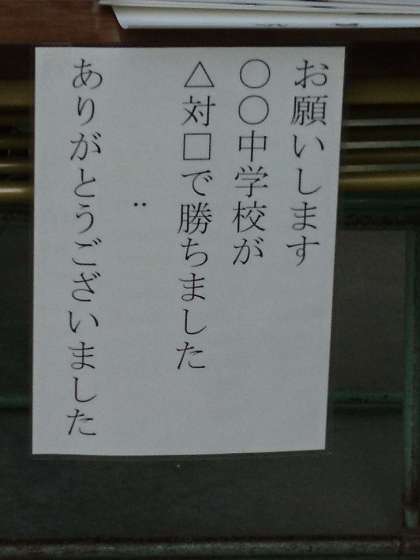 お願いします
○○中学校が
△対□で勝ちました
‥
ありがとうございました